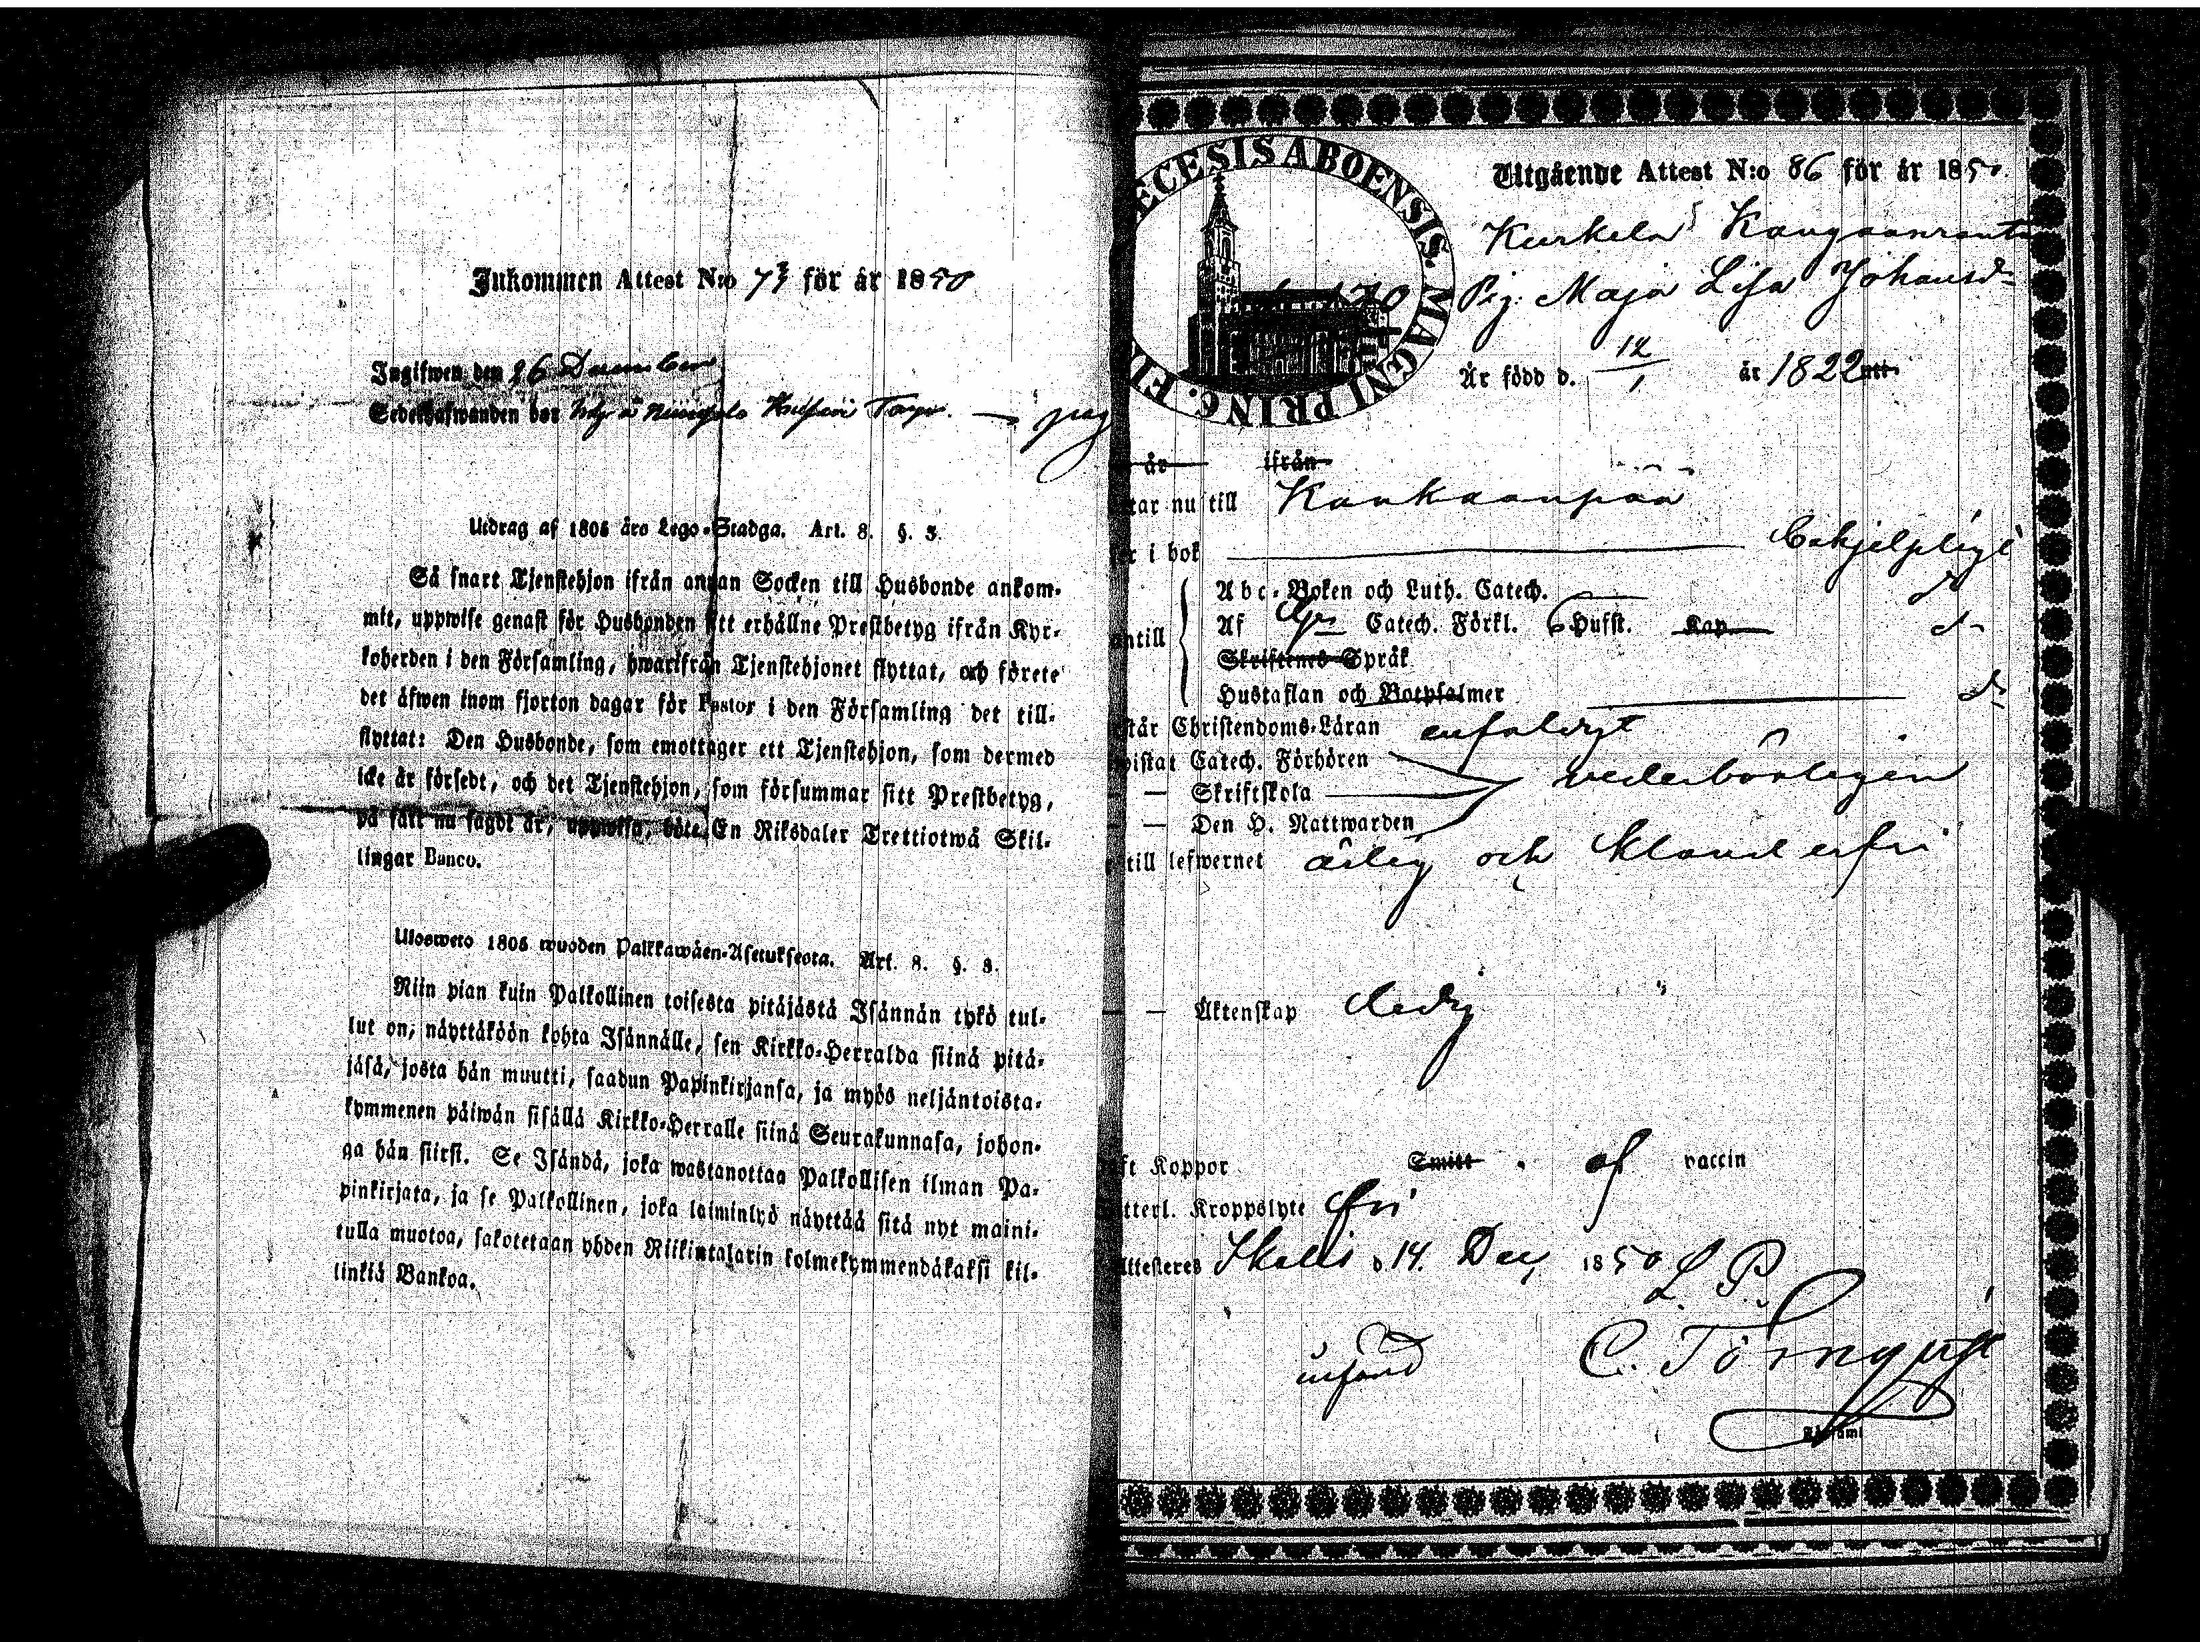 Inkommen Attest N:o 73 för år 1850
Ingifwen den 26 December
Sedelhafwanden bor
Utdrag af 1805 års Lego-Stadga. Art. 8. §. 3.
Så snart Tjenstehjon ifrån annan Socken till Husbonde ankom-
mit, uppwise genast för Husbonden sitt erhållne Prestbetyg ifrån Kyr-
koherden i den Församling, hwarifrån Tjenstehjonet flyttat, och förete
det äfwen inom fjorton dagar för Pastor i den Församling det till-
flyttat: Den Husbonde, som emottager ett Tjenstehjon, som dermed
icke är försedt, och det Tjenstehjon, som försummar sitt Prestbetyg,
på sätt nu sagdt är, uppwisa, böte En Riksdaler Trettiotwå Skil-
lingar Banco.
Uloswето 1805 wuoden Palkkawäen-Asetuksesta. Art. 8. §. 3.
Niin pian kuin Palkollinen toisesta pitäjästä Isännän tykö tul-
lut on, näyttäköön kohta Isännälle, sen Kirkko-Herralda siinä pitä-
jäsä, josta hän muutti, saadun Papinkirjansa, ja myös neljäntoista-
kymmenen päiwän sisällä Kirkko-Herralle siinä Seurakunnasa, johon-
ga hän siirsi. Se Isändä, joka wastanottaa Palkollisen ilman Pa-
pinkirjata, ja se Palkollinen, joka laiminlyö näyttää sitä nyt maini-
tulla muotoa, sakotetaan yhden Riikintalarin kolmekymmendäkaksi kil-
linkiä Bankoa.
ECESIS ABOENSIS. MAGNI PRINC. FI
Utgående Attest N:o 86 för år 1850.
Kurkela Kangaanranta
Pig. Maja Lisa Johansd
Är född d. 12/1 år 1822
år ifrån
tar nu till Kankaanpää
er i bok Behjelpligt
Abc-Boken och Luth. Catech. d
Af Catech. Förkl. 6 Hufst. Kap. d
antill
Skriftenes Språk
Hustaflan och Botpsalmer d
står Christendoms-Läran enfaldigt
wistat Catech. Förhören
— Skriftskola wederbörligen
— Den H. Nattwarden
till lefwernet ärlig och klanderfri
— Äktenskap Ledig
ft Koppor Smitt af vaccin
tterl. Kroppslyte fri
Attesteres d 14. Dec. 1850
L. P.
C. Törnqvist